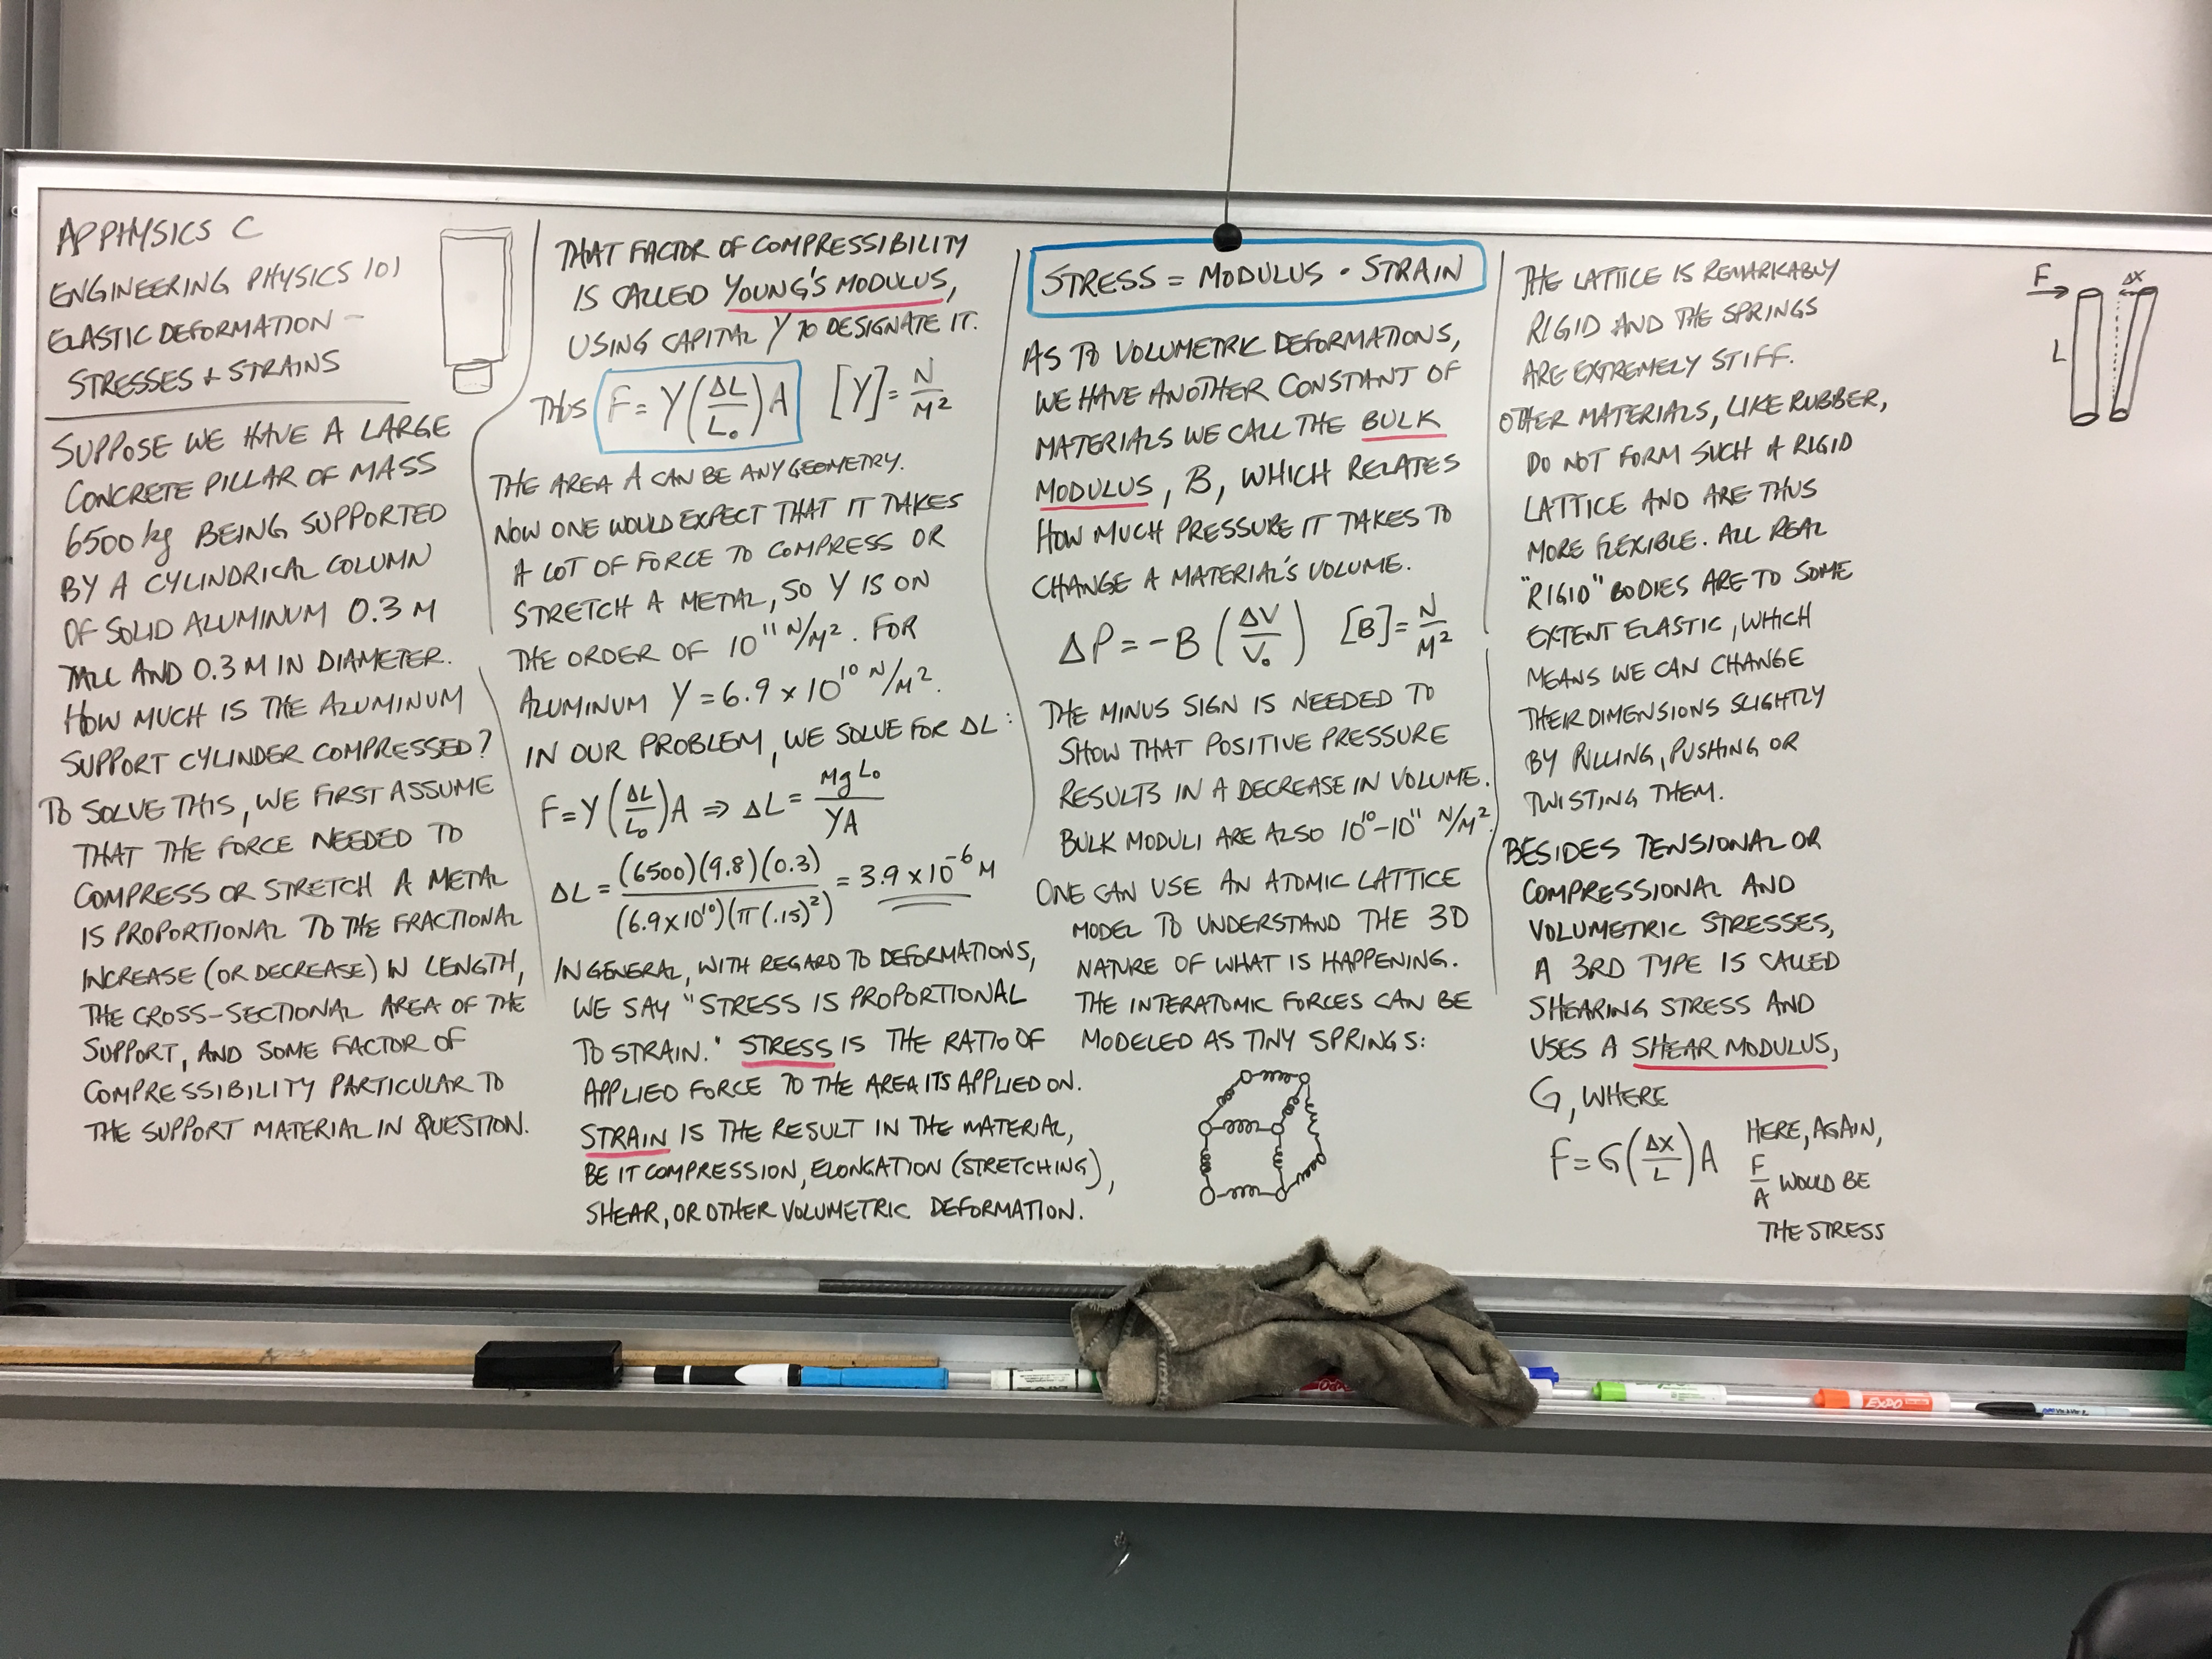 AP PHYSICS C
ENGINEERING PHYSICS 101
ELASTIC DEFORMATION –
STRESSES & STRAINS
SUPPOSE WE HAVE A LARGE
CONCRETE PILLAR OF MASS
6500 kg BEING SUPPORTED
BY A CYLINDRICAL COLUMN
OF SOLID ALUMINUM 0.3 M
TALL AND 0.3 M IN DIAMETER.
HOW MUCH IS THE ALUMINUM
SUPPORT CYLINDER COMPRESSED?
TO SOLVE THIS, WE FIRST ASSUME
THAT THE FORCE NEEDED TO
COMPRESS OR STRETCH A METAL
IS PROPORTIONAL TO THE FRACTIONAL
INCREASE (OR DECREASE) IN LENGTH,
THE CROSS-SECTIONAL AREA OF THE
SUPPORT, AND SOME FACTOR OF
COMPRESSIBILITY PARTICULAR TO
THE SUPPORT MATERIAL IN QUESTION.
THAT FACTOR OF COMPRESSIBILITY
IS CALLED YOUNG'S MODULUS,
USING CAPITAL Y TO DESIGNATE IT.
THUS F = Y(ΔL/L₀)A [Y] = N/M²
THE AREA A CAN BE ANY GEOMETRY.
NOW ONE WOULD EXPECT THAT IT TAKES
A LOT OF FORCE TO COMPRESS OR
STRETCH A METAL, SO Y IS ON
THE ORDER OF 10¹¹ N/M². FOR
ALUMINUM Y = 6.9 × 10¹⁰ N/M².
IN OUR PROBLEM, WE SOLVE FOR ΔL:
F = Y(ΔL/L₀)A ⇒ ΔL = MgL₀/YA
ΔL = (6500)(9.8)(0.3)/(6.9×10¹⁰)(π(.15)²) = 3.9 × 10⁻⁶ M
IN GENERAL, WITH REGARD TO DEFORMATIONS,
WE SAY "STRESS IS PROPORTIONAL
TO STRAIN." STRESS IS THE RATIO OF
APPLIED FORCE TO THE AREA ITS APPLIED ON.
STRAIN IS THE RESULT IN THE MATERIAL,
BE IT COMPRESSION, ELONGATION (STRETCHING),
SHEAR, OR OTHER VOLUMETRIC DEFORMATION.
STRESS = MODULUS · STRAIN
AS TO VOLUMETRIC DEFORMATIONS,
WE HAVE ANOTHER CONSTANT OF
MATERIALS WE CALL THE BULK
MODULUS, B, WHICH RELATES
HOW MUCH PRESSURE IT TAKES TO
CHANGE A MATERIAL'S VOLUME.
ΔP = -B (ΔV/V₀) [B] = N/M²
THE MINUS SIGN IS NEEDED TO
SHOW THAT POSITIVE PRESSURE
RESULTS IN A DECREASE IN VOLUME.
BULK MODULI ARE ALSO 10¹⁰–10¹¹ N/M².
ONE CAN USE AN ATOMIC LATTICE
MODEL TO UNDERSTAND THE 3D
NATURE OF WHAT IS HAPPENING.
THE INTERATOMIC FORCES CAN BE
MODELED AS TINY SPRINGS:
THE LATTICE IS REMARKABLY
RIGID AND THE SPRINGS
ARE EXTREMELY STIFF.
OTHER MATERIALS, LIKE RUBBER,
DO NOT FORM SUCH A RIGID
LATTICE AND ARE THUS
MORE FLEXIBLE. ALL REAL
"RIGID" BODIES ARE TO SOME
EXTENT ELASTIC, WHICH
MEANS WE CAN CHANGE
THEIR DIMENSIONS SLIGHTLY
BY PULLING, PUSHING OR
TWISTING THEM.
BESIDES TENSIONAL OR
COMPRESSIONAL AND
VOLUMETRIC STRESSES,
A 3RD TYPE IS CALLED
SHEARING STRESS AND
USES A SHEAR MODULUS,
G, WHERE
F = G(ΔX/L)A
HERE, AGAIN,
F/A WOULD BE
THE STRESS
F
ΔX
L
EXPO